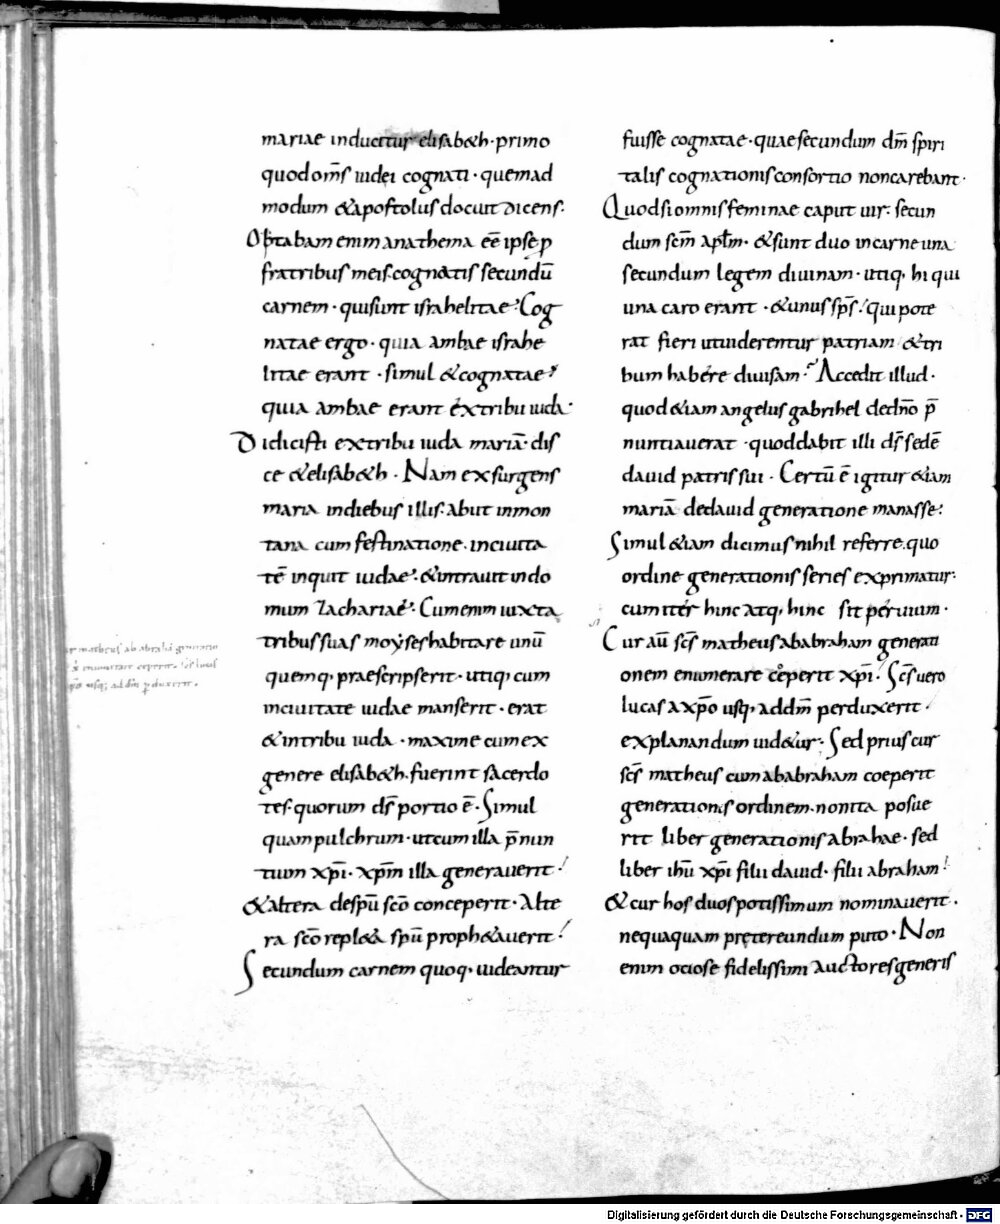 mariae inducitur elisab&h · primo
quod om̅s iudei cognati · quemad
modum &apostolus docuit dicens ·
Obtabam enim anathema ee̅ ipse p̱
fratribus meis · cognatis secundu̅
carnem · qui sunt israhelitae · Cog
natae ergo · quia ambae israhe
litae erant · simul & cognatae ·
quia ambae erant ex tribu iuda ·
Didicisti ex tribu iuda maria̅ · dis
ce & elisab&h · Nam exsurgens
maria in diebus illis · abiit in mon
tana cum festinatione · in ciuita
te̅ inquit iudae · & intrauit in do
mum zachariae · Cum enim iuxta
tribus suas moyses habitare unu̅
quemq· praescripserit · utiq· cum
in ciuitate iudae manserit · erat
& in tribu iuda · maxime cum ex
genere elisab&h · fuerint sacerdo
tes · quorum ds̅ portio e̅ · Simul
quam pulchrum · ut cum illa p̅nun
tium xp̅i · xp̅m illa generauerit ·
& altera de spu̅ sc̅o conceperit · Alte
ra sc̅o repl&a spu̅ proph&auerit ·
Secundum carnem quoq· uideantur
fuisse cognatae · quae secundum dm̅ spiri
talis cognationis consortio non carebant ·
Quod si omnis feminae caput uir · secun
dum sc̅m apl̅m · & sunt duo in carne una
secundum legem diuinam · utiq· hi qui
una caro erant · & unus sps̅ · qui pote
rat fieri ut uiderentur patriam & tri
bum habere diuisam · Accedit illud ·
quod &iam angelus gabrihel de dn̅o p̅
nuntiauerat · quod dabit illi ds̅ sede̅
dauid patris sui · Certu̅ e̅ igitur &iam
maria̅ de dauid generatione manasse ·
Simul &iam dicimus nihil referre · quo
ordine generationis series exprimatur ·
cum iter hinc atq· hinc sit peruium ·
Cur au̅ sc̅s matheus ab abraham generati
onem enumerare coeperit xp̅i · Sc̅s uero
lucas a xp̅o usq· ad dm̅ perduxerit ·
explanandum uid&ur · Sed prius cur
sc̅s matheus cum ab abraham coeperit
generationis ordinem · non ita posue
rit liber generationis abrahae · sed
liber ihu̅ xp̅i filii dauid · filii abraham ·
& cur hos duos potissimum nominauerit ·
nequaquam pręterеundum puto · Non
enim ociose fidelissimi auctores generis
matheus ab abraha̅
Digitalisierung gefördert durch die Deutsche Forschungsgemeinschaft - DFG